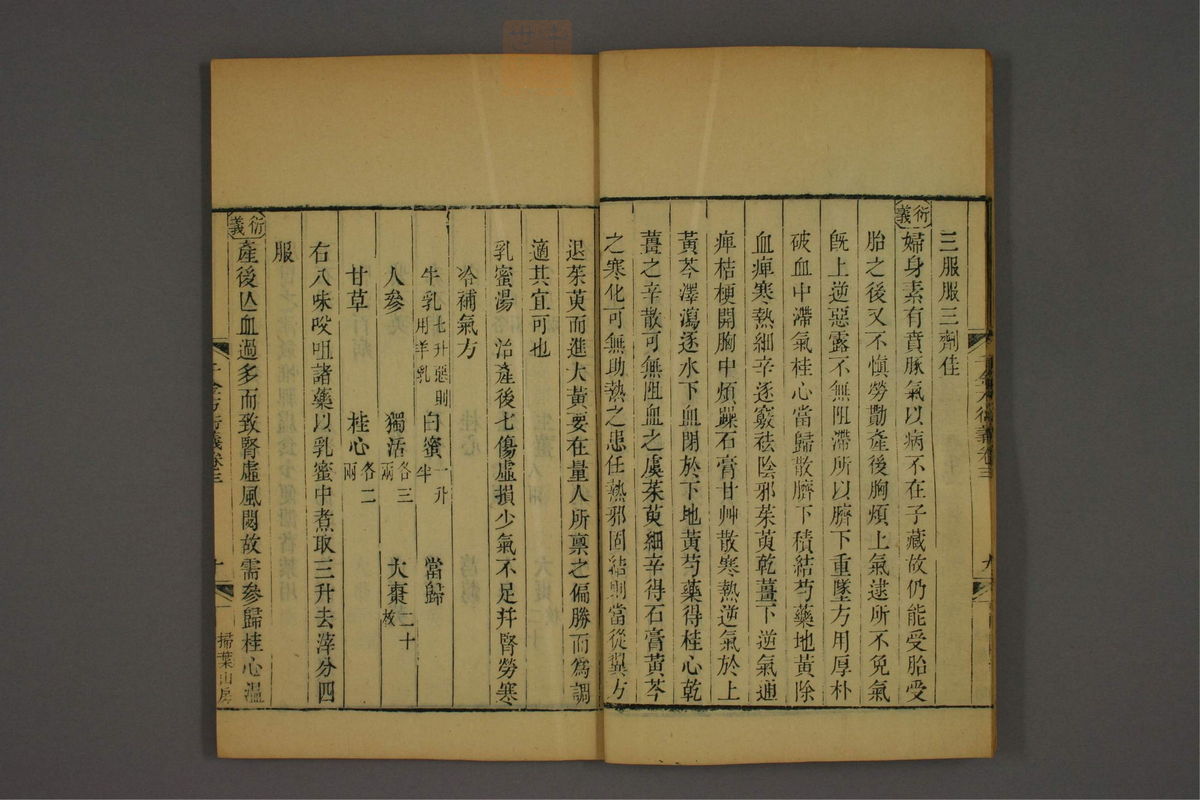 三服服三劑佳
衍義
婦身素有賁豚氣以病不在子藏故仍能受胎受
胎之後又不愼勞動產後胸煩上氣逮所不免氣
旣上逆惡露不無阻滯所以臍下重墜方用厚朴
破血中滯氣桂心當歸散臍下積結芍藥地黃除
血痺寒熱細辛逐竅祛陰邪茱萸乾薑下逆氣通
痺桔梗開胸中煩躁石膏甘艸散寒熱逆氣於上
黃芩澤瀉逐水下血閉於下地黃芍藥得桂心乾
薑之辛散可無阻血之虞茱萸細辛得石膏黃芩
之寒化可無助熱之患任熱邪固結則當從翼方
千金方衍義卷三
九
退茱萸而進大黃要在量人所稟之偏勝而爲調
適其宜可也
乳蜜湯 治產後七傷虛損少氣不足幷腎勞寒
冷補氣方
牛乳七升惡則用羊乳 白蜜一升半 當歸
人參 獨活各三兩 大棗二十枚
甘草 桂心各二兩
右八味㕮咀諸藥以乳蜜中煮取三升去滓分四
服
衍義
產後亾血過多而致腎虛風閟故需參歸桂心溫
千金方衍義卷三
十
掃葉山房